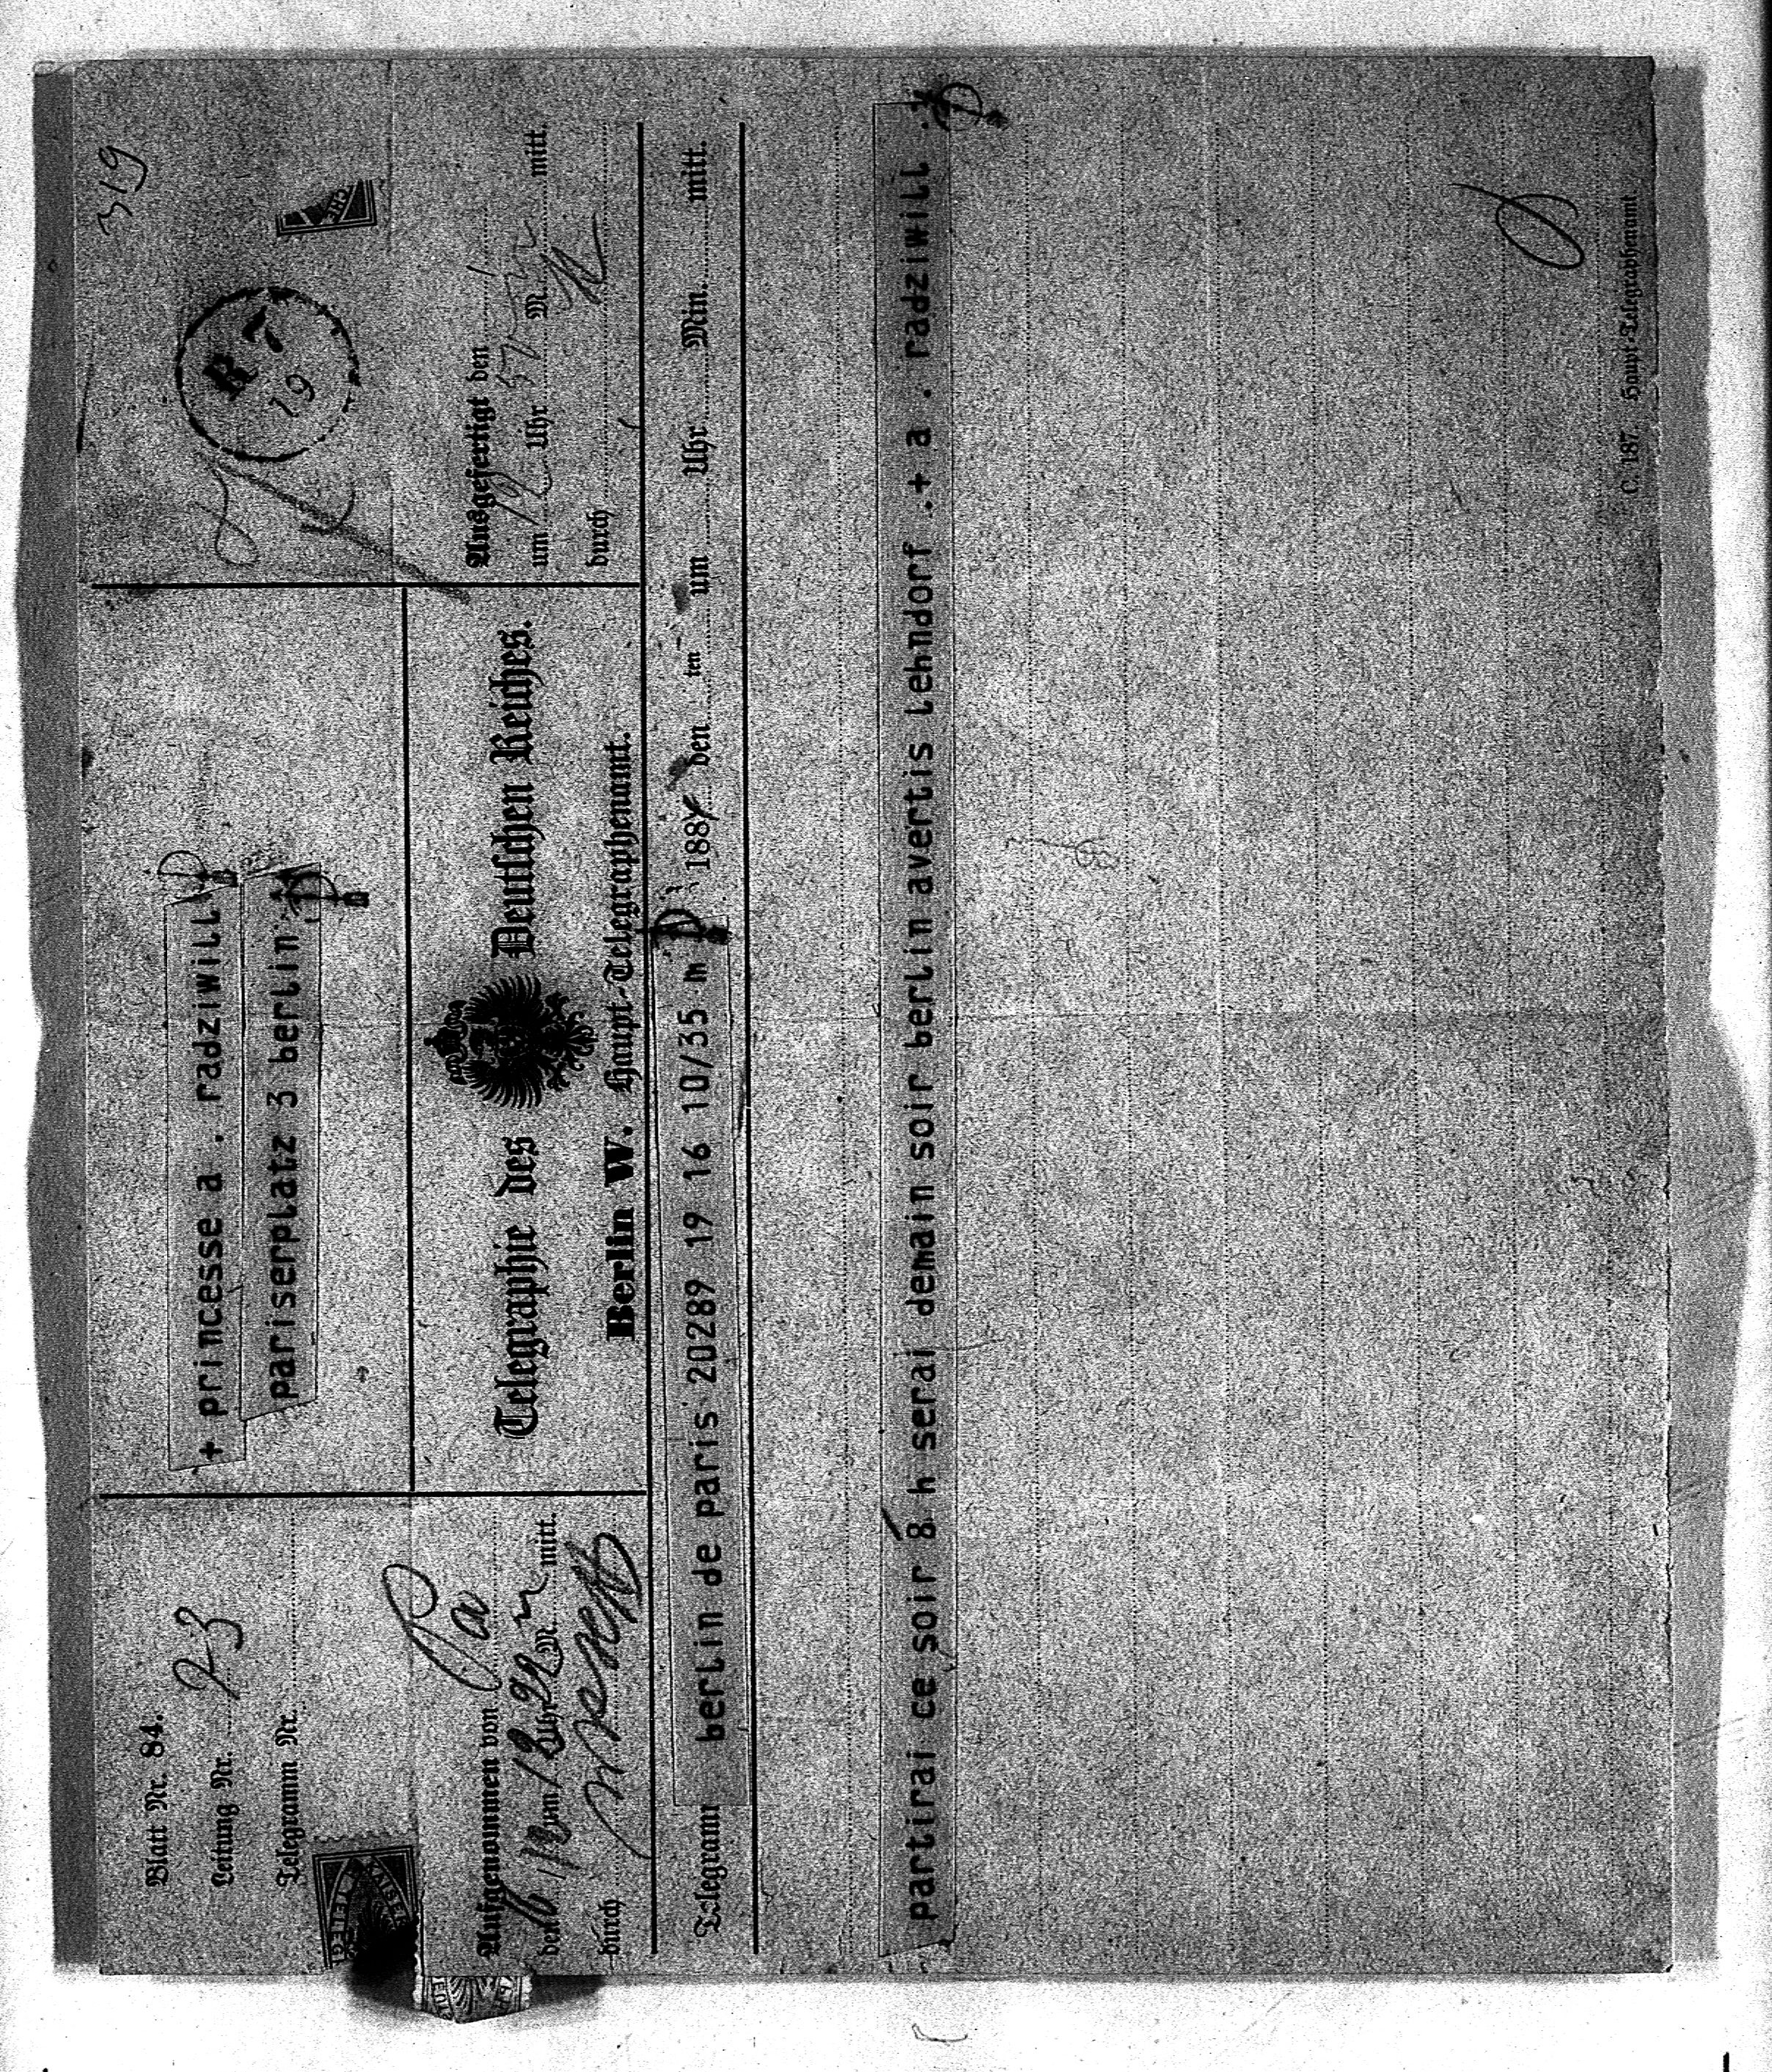 Blatt Nr. 84.
Leitung Nr. 23
Telegramm Nr.
+ princesse a . radziwill
pariserplatz 3 berlin
319
R
19
Aufgenommen von Pa
den 16/12 um 12 Uhr 22 M. mitt.
durch
Telegraphie des Deutschen Reiches.
Berlin W. Haupt-Telegraphenamt.
Ausgefertigt den
um 12 Uhr 57 M. mitt.
durch
Telegramm berlin de paris 20289 19 16 10/35 m 188 den ten um Uhr Min. mitt.
partirai ce soir 8 h serai demain soir berlin avertis lehndorf .+ a . radziwill .
C. 187. Haupt-Telegraphenamt